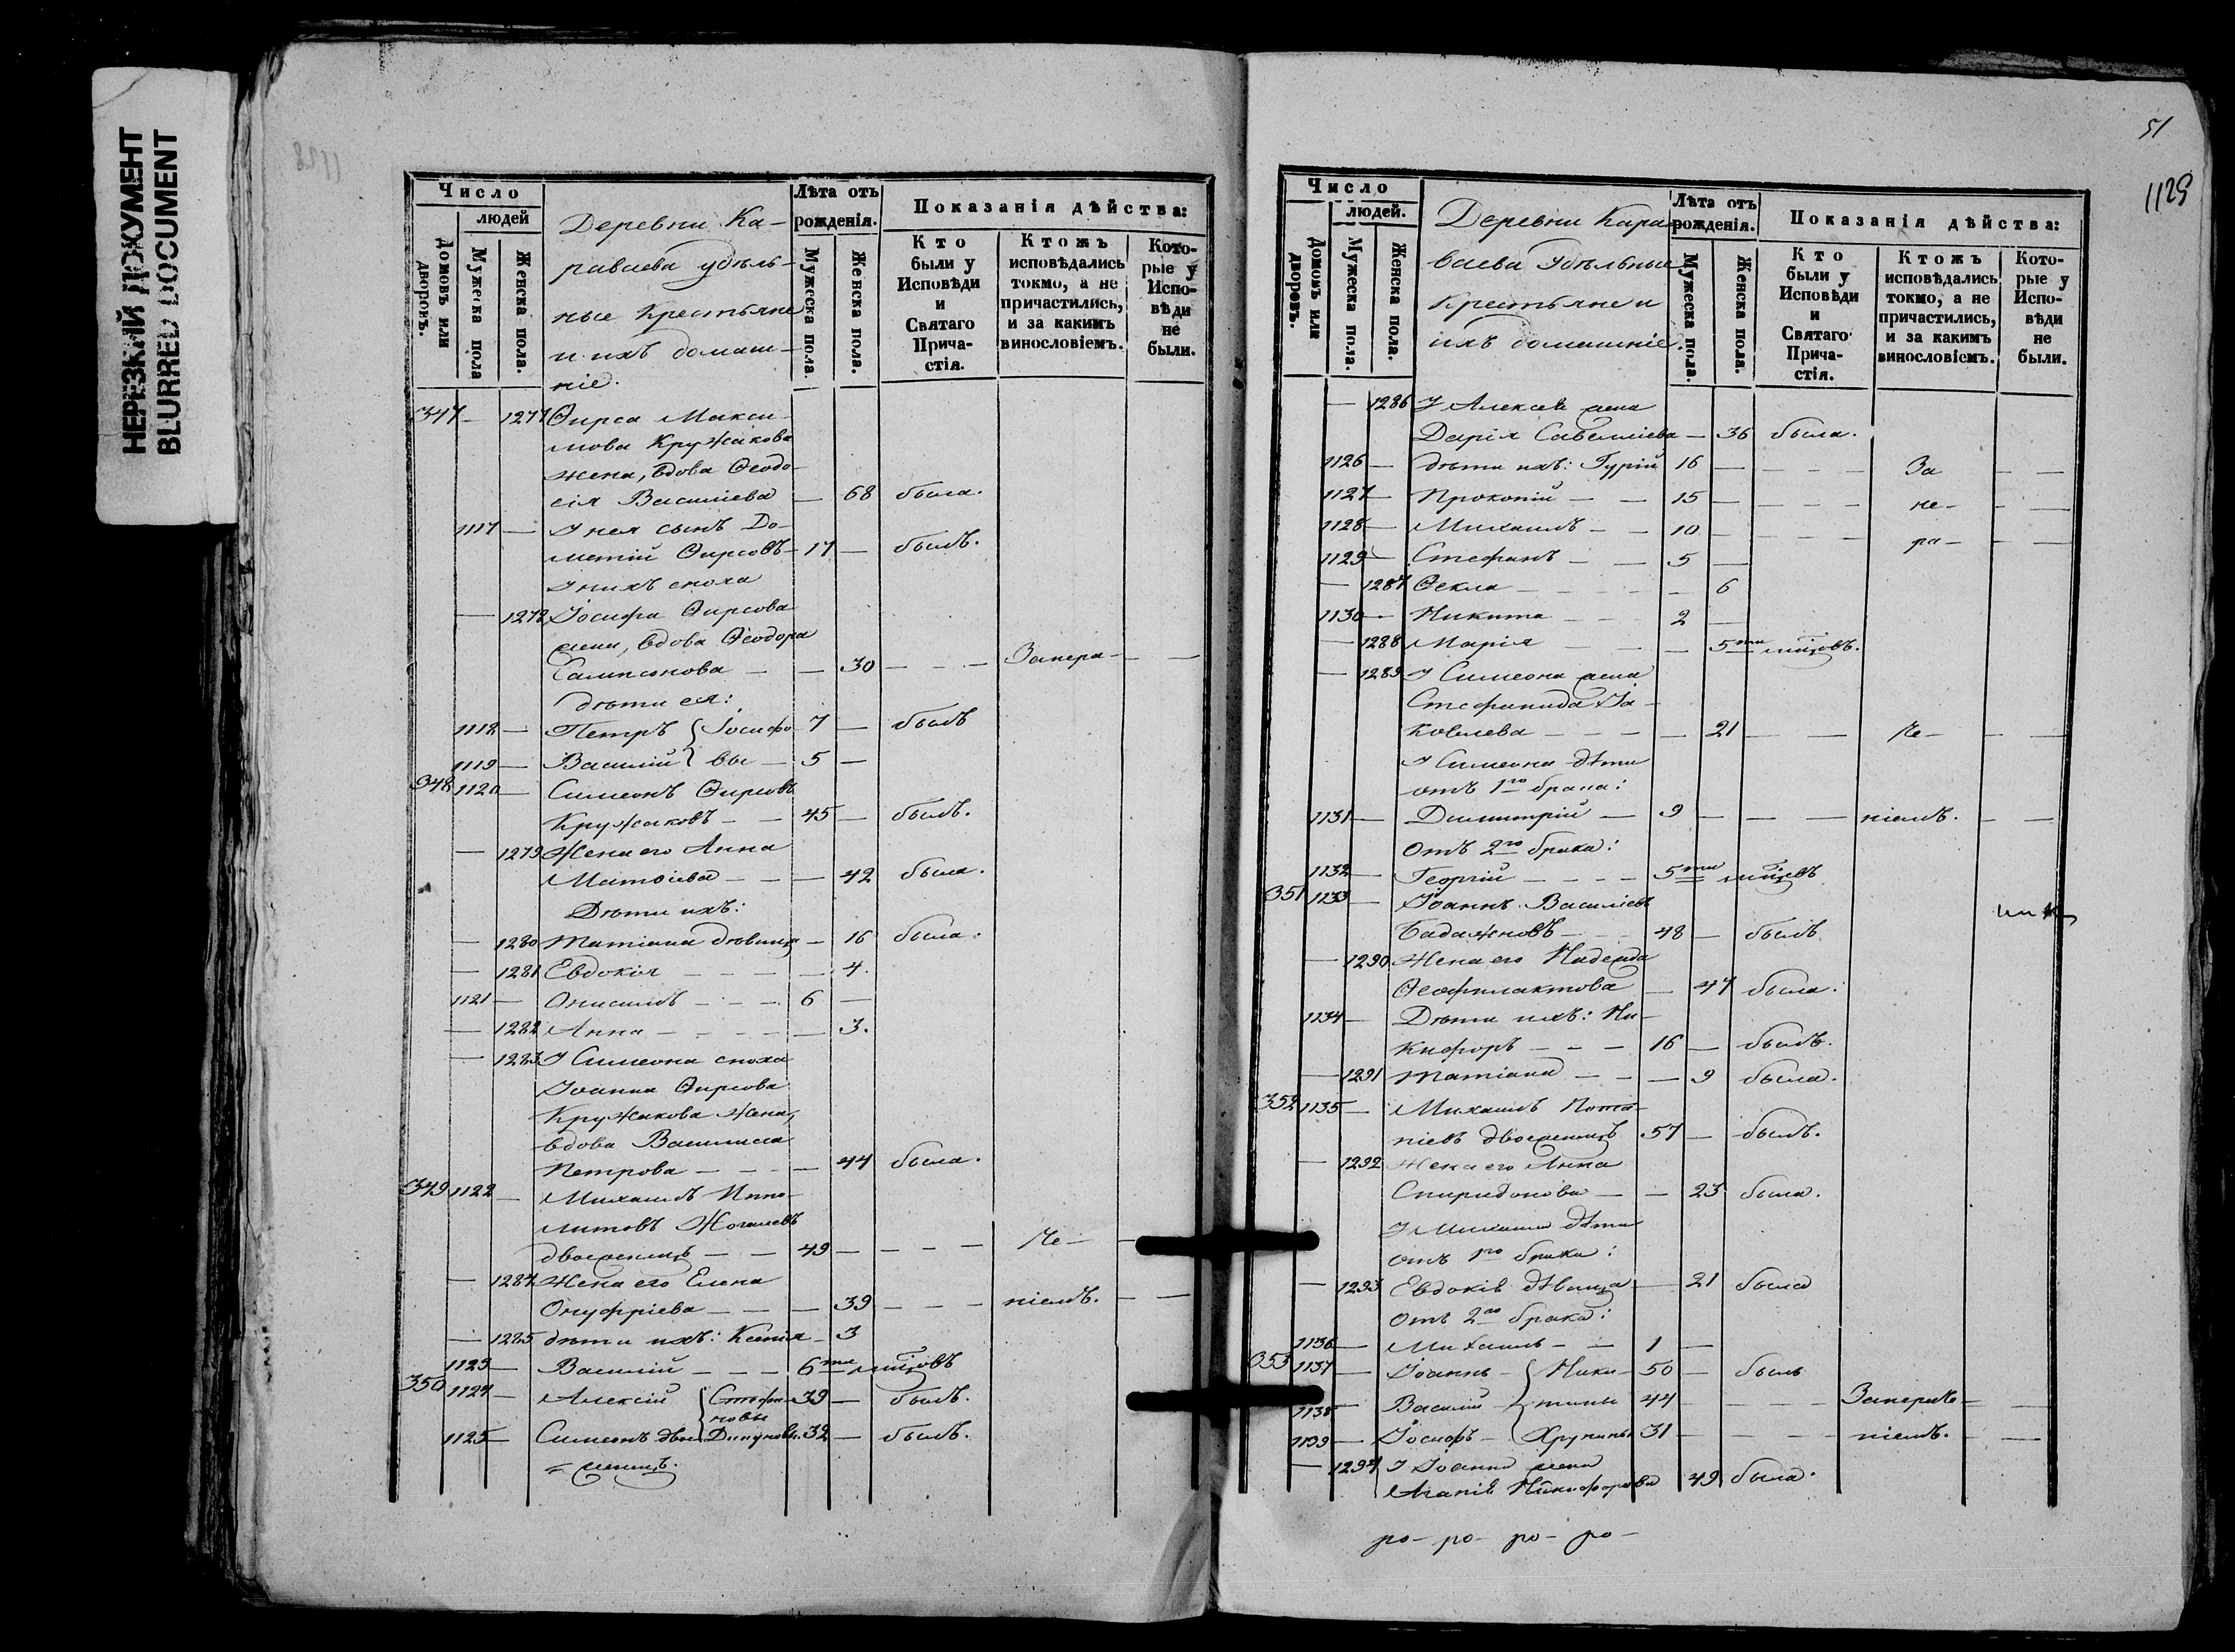 НЕРЕЗКИЙ ДОКУМЕНТ
BLURRED DOCUMENT
Число
людей
Домовъ или дворовъ.
Мужеска пола
Женска пола.
Деревни Ка-
раваева удѣль-
ные Крестьяне
и ихъ домаш-
ніе.
Лѣта отъ рожденія.
Мужеска пола.
Женска пола.
Показанія дѣйства:
Кто были у Исповѣди и Святаго Прича-стія.
Ктожъ исповѣдались токмо, а не причастились, и за какимъ винословіемъ.
Кото-рые у Испо-вѣди не были.
347 — 1277 Ѳирса Макси-
мова Кружакова
жена, вдова Ѳеодо-
сія Василіева — 68 была.
1117 — У нея сынъ До-
метій Ѳирсовъ — 17 — былъ.
У нихъ сноха
— 1278 Іосифа Ѳирсова
жена, вдова Ѳеодора
Сампсонова — — 30 — — — Занера — — —
дѣти ея:
1118 — Петръ { Іосифо- 7 — былъ
1119 — Василій } вы — 5 —
348 1120 — Симеонъ Ѳирсовъ
Кружаковъ — — 45 — былъ.
— 1279 Жена его Анна
Матѳіева — — — 42 была.
Дѣти ихъ:
— 1280 Татіана дѣвица — 16 была.
— 1281 Евдокія — — — — 4.
1121 — Онисимъ — — — 6 —
— 1282 Анна — — — — 3.
— 1283 У Симеона сноха
Іоанна Ѳирсова
Кружакова Жена,
вдова Василиса
Петрова — — — 44 была.
349 1122 — Михаилъ Иппо-
литовъ Жогалевъ
двоеженецъ — — 49 — — — — Не — —
— 1284 Жена его Елена
Онуфріева — — — 39 — — — ніемъ. — —
— 1285 дѣти ихъ: Ксенія — 3
1123 — Василій — — — 6ти мѣсяцовъ
350 1124 — Алексій { Стефа- 39 — былъ.
новы
1125 — Симеонъ двое- 32 — былъ.
= женецъ.
51
1129
Число
людей.
Домовъ или дворовъ.
Мужеска пола.
Женска пола.
Деревни Кара-
ваева Удѣльные
Крестьяне и
ихъ домашніе.
Лѣта отъ рожденія.
Мужеска пола.
Женска пола.
Показанія дѣйства:
Кто были у Исповѣди и Святаго Прича-стія.
Ктожъ исповѣдались токмо, а не причастились, и за какимъ винословіемъ.
Кото-рые у Испо-вѣди не были.
— 1286 У Алексѣя жена
Дарія Савеліева — 36 была.
1126 — дѣти ихъ: Гурій 16 — — — — За — —
1127 — Прокопій — — 15 — — — — не- — —
1128 — Михаилъ — — 10 — — — — ра — — —
1129 — Стефанъ — — 5 —
— 1287 Ѳекла — — — — — 6
1130 — Никита — — — 2 —
— 1288 Марія — — — 5ти мѣсяцовъ.
— 1289 У Симеона жена
Стефанида Іа-
ковлева — — — — 21 — — Не — — —
У Симеона дѣти
отъ 1го брака:
1131 — Димитрій — 9 — — — ніемъ. — —
Отъ 2го брака:
1132 — Георгій — — — — 5ти мѣсяцевъ
351 1133 — Іоаннъ Василіевъ
Бадажковъ — — — 48 — былъ.
— 1290 Жена его Надежда
Ѳеофилактова — 47 была.
1134 — Дѣти ихъ: Ни-
кифоръ — — — 16 — былъ.
— 1291 Татіана — — — 9 была.
352 1135 — Михаилъ Пота-
піевъ двоеженецъ 57 — былъ.
— 1292 Жена его Анна
Спиридонова — — 23 была.
У Михаила дѣти
отъ 1го брака:
— 1293 Евдокія дѣвица — 21 была
Отъ 2го брака:
1136 — Михаилъ — — 1 —
353 1137 — Іоаннъ — { Ники- 50 — былъ
1138 — Василій — тины 44 — — — — —
1139 — Іосифъ — 31 — — — — ніемъ. — —
— 1294 У Іоанна жена
Агапія Никифорова 49 была.
ро- ро- ро- ро-